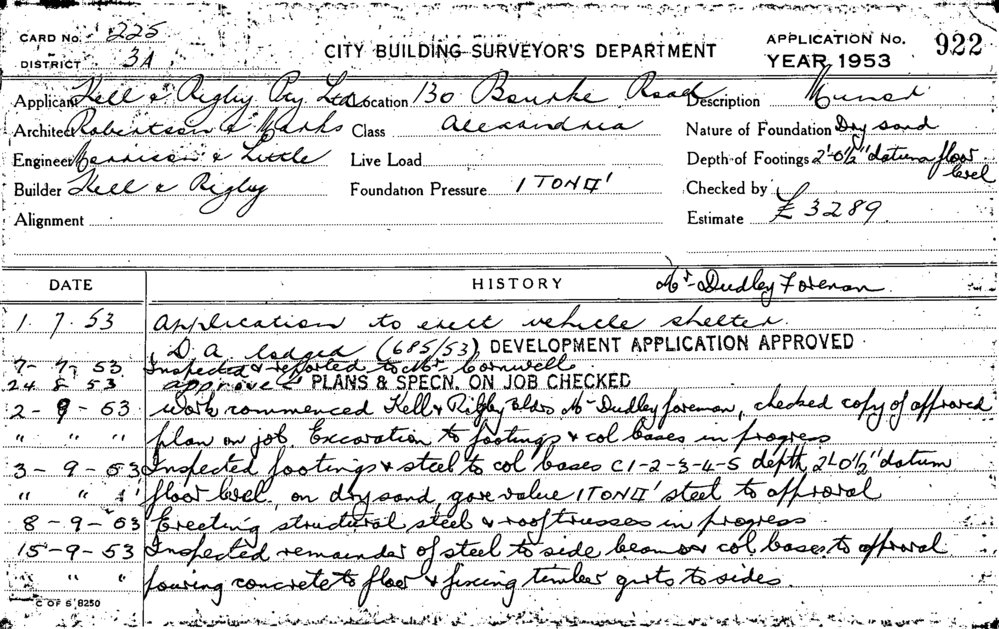 CARD No. 225
DISTRICT 3A
CITY BUILDING SURVEYOR'S DEPARTMENT
APPLICATION No. 922
YEAR 1953
Applicant Kell & Rigby Pty Ltd Location 130 Bourke Road Description Minor
Architect Robertson & Marks Class Alexandria Nature of Foundation Dry sand
Engineer Morrison & Little Live Load Depth of Footings 2'-0½" datum floor level
Builder Kell & Rigby Foundation Pressure 1 TON □' Checked by
Alignment Estimate £3289
DATE HISTORY Mr Dudley Foreman
1. 7. 53 Application to erect vehicle shelter.
D.A. lodged (685/53) DEVELOPMENT APPLICATION APPROVED
7- 7- 53 Inspected & reported to Mr Cornwell
24 8 53 approved PLANS & SPECN. ON JOB CHECKED
2 - 9 - 53 Work commenced Kell & Rigby bldrs Mr Dudley foreman, checked copy of approved
" " " plan on job. Excavation to footings & col bases in progress
3 - 9 - 53 Inspected footings & steel to col bases C1-2-3-4-5 depth 2'-0½" datum
" " " floor level. on dry sand, gave value 1 TON □' steel to approval
8 - 9 - 53 Erecting structural steel & roof trusses in progress
15 - 9 - 53 Inspected remainder of steel to side beams & col bases to approval
" " pouring concrete to floor & fixing timber girts to sides.
C OF S 8250